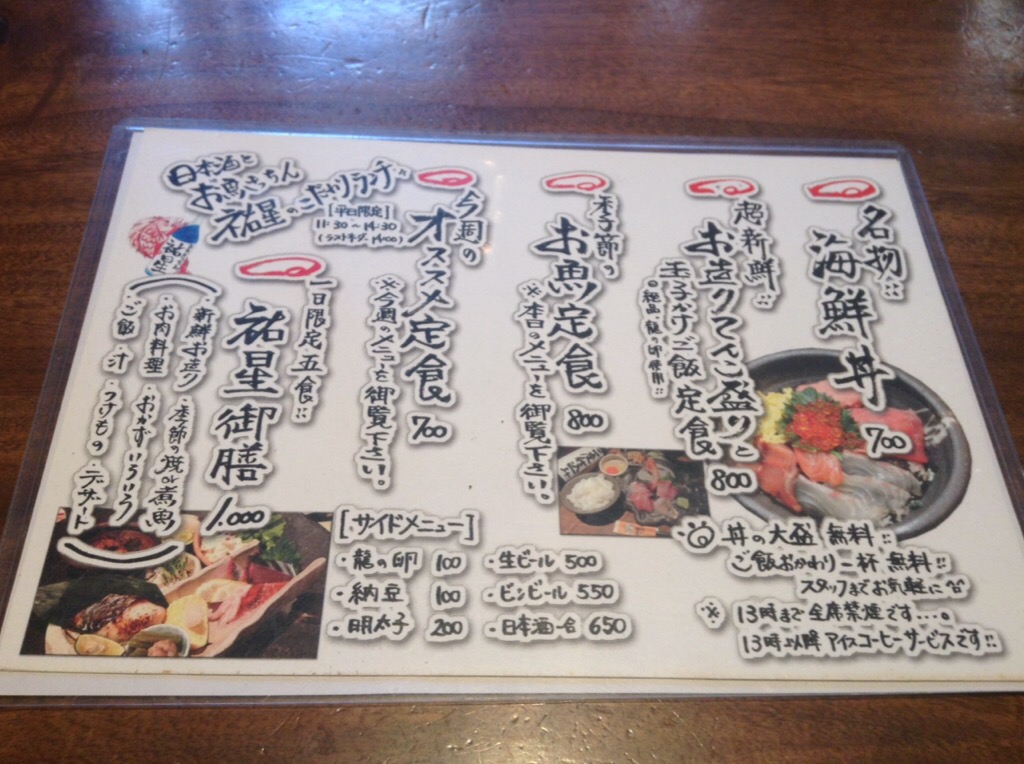 名物!!
海鮮丼
700
超新鮮!!
お造りてんこ盛りと
玉子かけご飯定食
◎極品 龍の卵使用!!
800
季節の
お魚定食
800
※本日のメニューを御覧下さい。
今週の
オススメ定食
700
※今週のメニューを御覧下さい。
日本酒と
お魚きっちん
祐星のこだわりランチ!!
[平日限定]
11:30〜14:30
(ラストオーダー14:00)
祐星
一日限定五食!!
祐星御膳
1,000
・新鮮お造り ・季節の焼or煮魚
・お肉料理 ・おかずいろいろ
・ご飯 ・汁 ・つけもの ・デザート
[サイドメニュー]
・龍の卵 100
・納豆 100
・明太子 200
・生ビール 500
・ビンビール 550
・日本酒一合 650
丼の大盛 無料!!
ご飯おかわり一杯無料!!
スタッフまでお気軽に
※13時まで全席禁煙です...。
13時以降アイスコーヒーサービスです!!